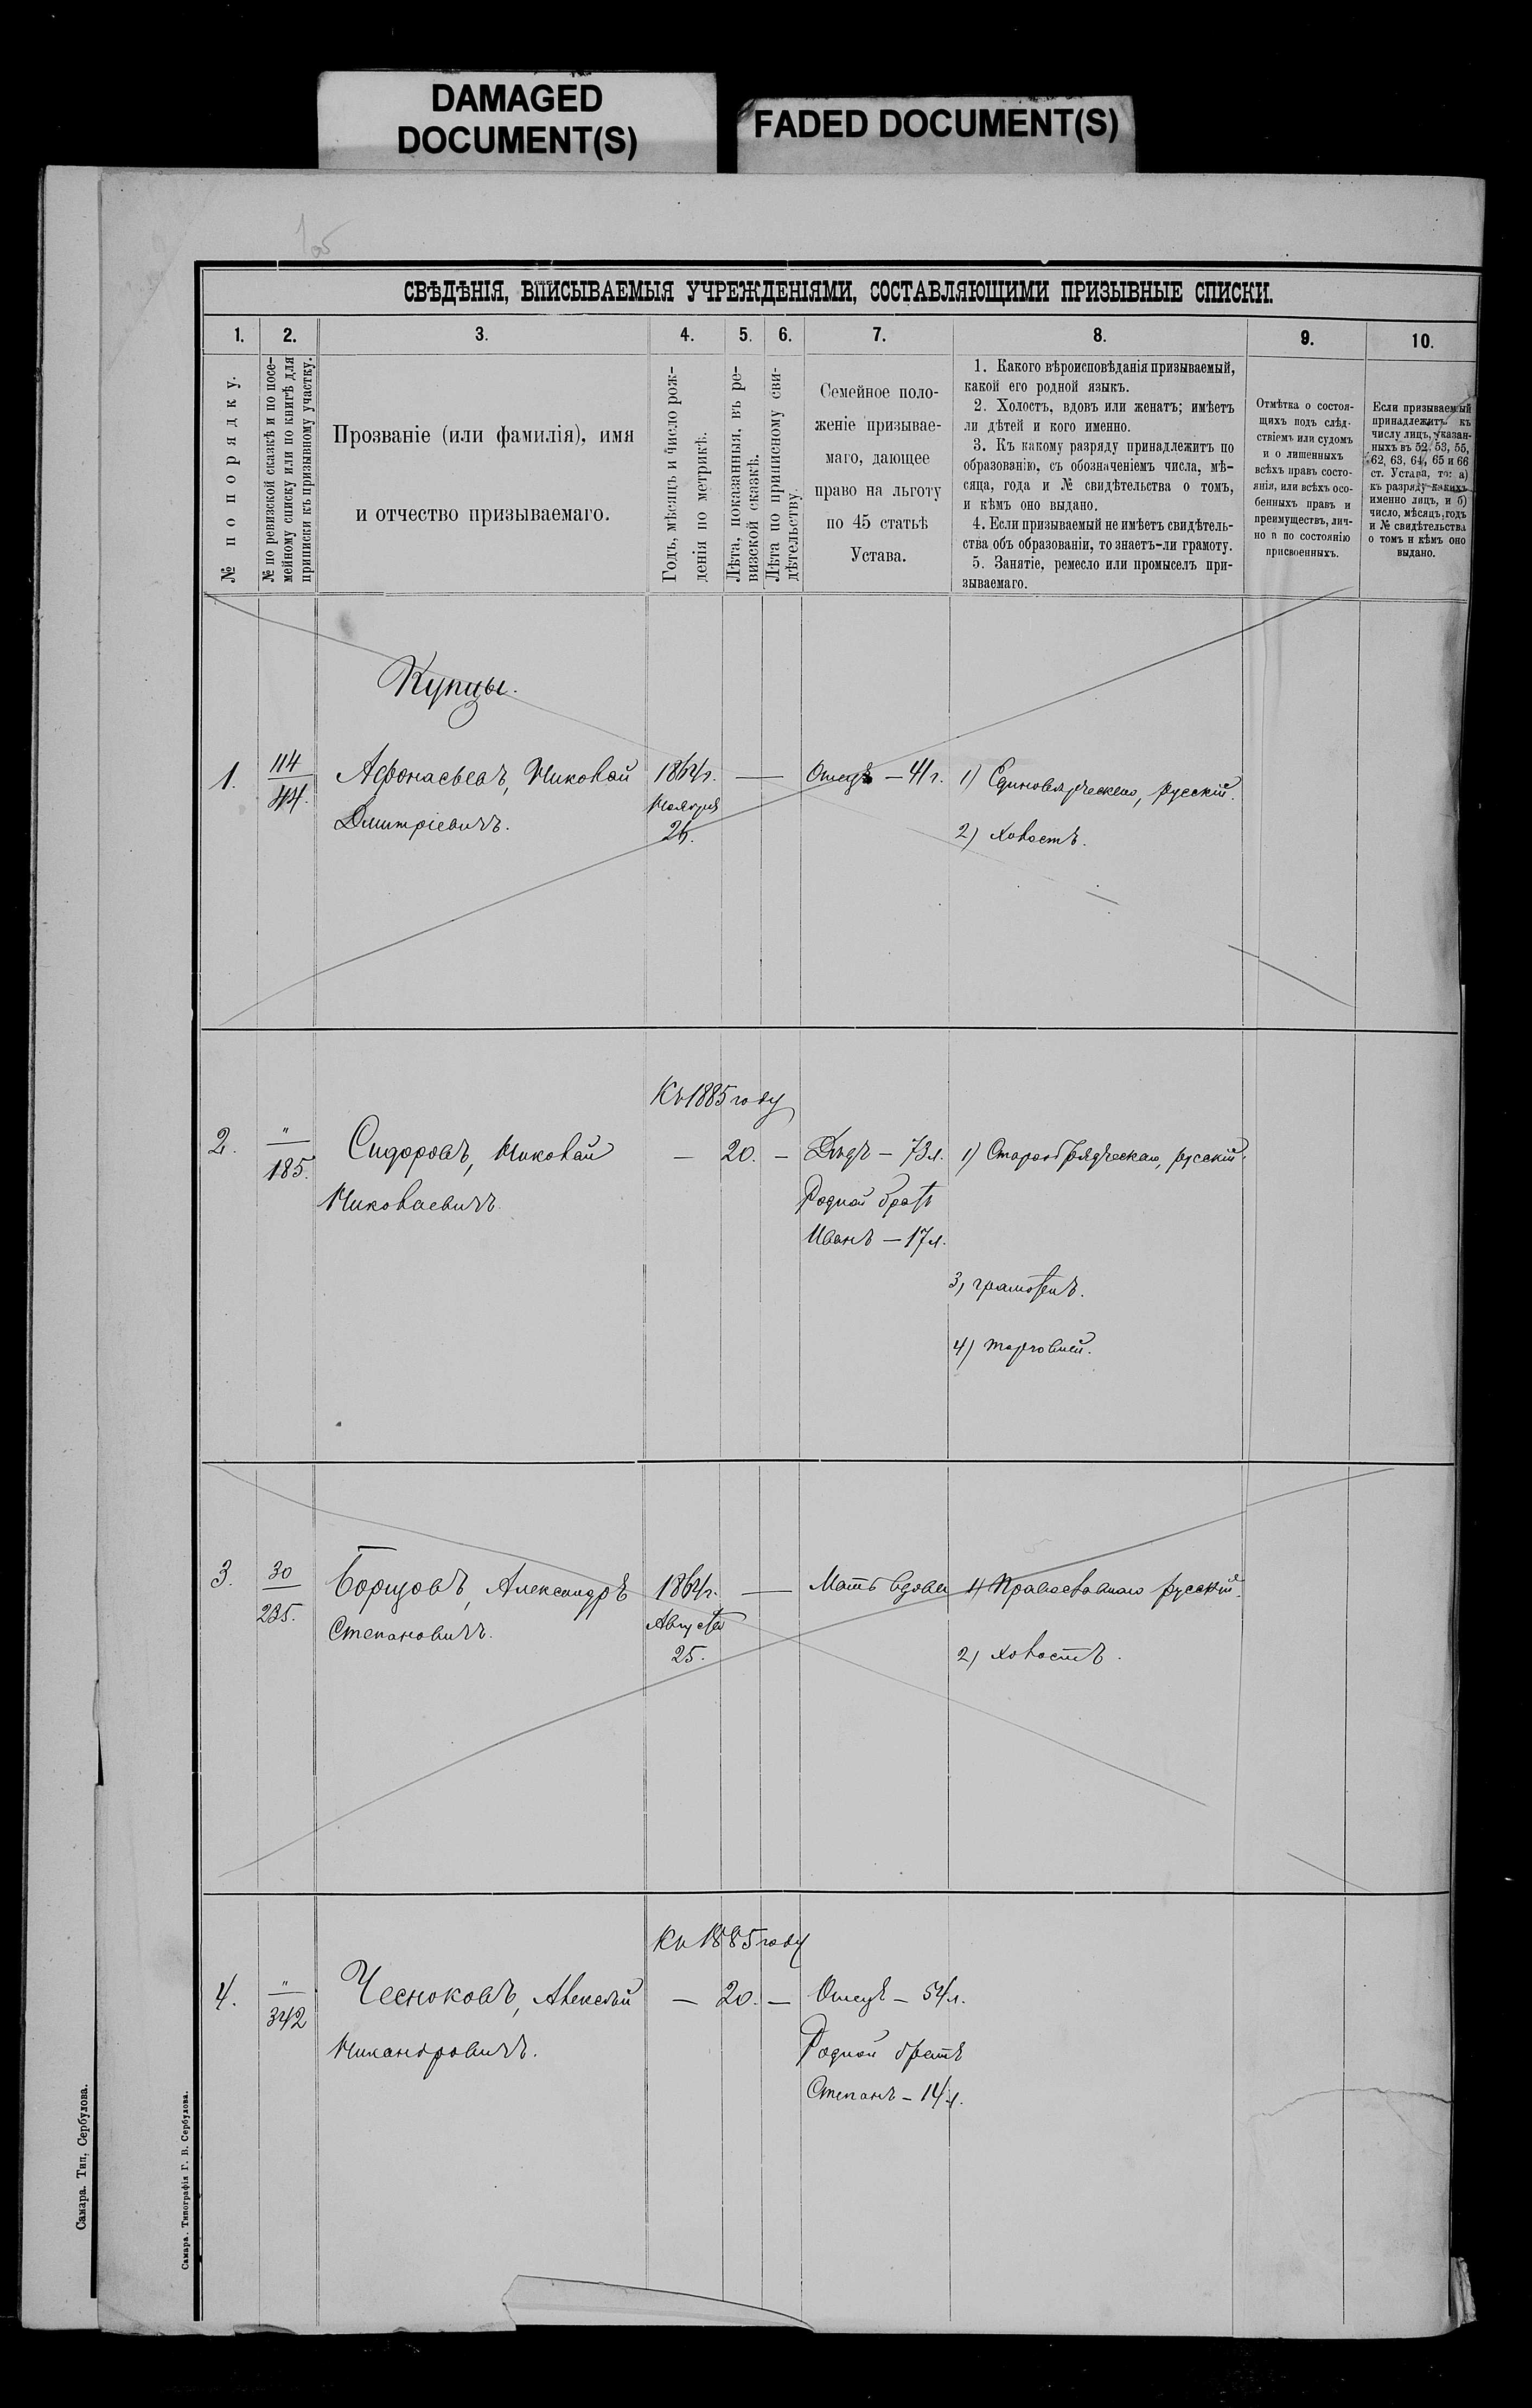 DAMAGED
DOCUMENT(S)
FADED DOCUMENT(S)
СВѢДѢНІЯ, ВПИСЫВАЕМЫЯ УЧРЕЖДЕНІЯМИ, СОСТАВЛЯЮЩИМИ ПРИЗЫВНЫЕ СПИСКИ.
1.
2.
3.
4.
5.
6.
7.
8.
9.
10.
№ по порядку.
№ по ревизской сказкѣ и по посе-
мейному списку или по книгѣ для
приписки къ призывному участку.
Прозваніе (или фамилія), имя
и отчество призываемаго.
Годъ, мѣсяцъ и число рож-
денія по метрикѣ.
Лѣта, показанныя, въ ре-
визской сказкѣ.
Лѣта по приписному сви-
дѣтельству.
Семейное поло-
женіе призывае-
маго, дающее
право на льготу
по 45 статьѣ
Устава.
1. Какого вѣроисповѣданія призываемый,
какой его родной языкъ.
2. Холостъ, вдовъ или женатъ; имѣетъ
ли дѣтей и кого именно.
3. Къ какому разряду принадлежитъ по
образованію, съ обозначеніемъ числа, мѣ-
сяца, года и № свидѣтельства о томъ,
и кѣмъ оно выдано.
4. Если призываемый не имѣетъ свидѣтель-
ства объ образованіи, то знаетъ-ли грамоту.
5. Занятіе, ремесло или промыселъ при-
зываемаго.
Отмѣтка о состоя-
щихъ подъ слѣд-
ствіемъ или судомъ
и о лишенныхъ
всѣхъ правъ состо-
янія, или всѣхъ осо-
бенныхъ правъ и
преимуществъ, лич-
но и по состоянію
присвоенныхъ.
Если призываемый
принадлежитъ къ
числу лицъ, указан-
ныхъ въ 52, 53, 55,
62, 63, 64, 65 и 66
ст. Устава, то: а)
къ разряду какихъ
именно лицъ, и б)
число, мѣсяцъ, годъ
и № свидѣтельства
о томъ и кѣмъ оно
выдано.
Купцы.
1.
114
44.
Афонасьевъ, Николай
Дмитріевичъ.
1864г.
Ноября
26.
Отецъ — 41 г.
1) Единовѣрческаго, русскій.
2) холостъ.
2.
"
185.
Сидоровъ, Николай
Николаевичъ
Къ 1885 году
— 20. —
Дѣдъ — 73 л.
Родной братъ
Иванъ — 17 л.
1) Старообрядческаго, русскій.
3) грамотенъ.
4) торговлей.
3.
30
235.
Борцовъ, Александръ
Степановичъ.
1864г.
Августа
25.
Мать вдова
1) Православнаго русскій.
2) холостъ.
4.
"
342
Чесноковъ, Алексѣй
Никандровичъ.
Къ 1885 году
— 20. —
Отецъ — 54 л.
Родной братъ
Степанъ — 14 л.
Самара. Тип. Сербулова.
Самара. Типографія Г. В. Сербулова.